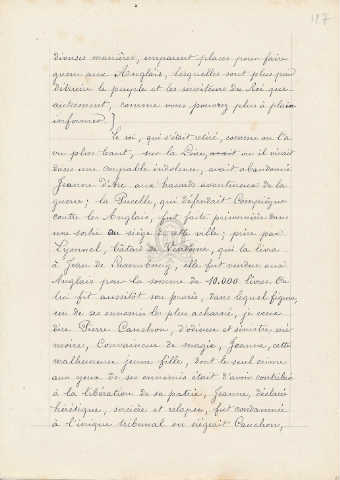 117
diverses manières, imparent places pour faire
guerre aux Anglais, lesquelles sont plus pour
détruire le peuple et les serviteurs du Roi que
autrement, comme vous pouvez plus à plain
informer.]
Le roi, qui s'était retiré, comme on l'a
vu plus haut, sur la Loire, où il vivait
dans une coupable indolence, avait abandonné
Jeanne d'Arc aux hasards aventureux de la
guerre ; la Pucelle, qui défendait Compiègne
contre les Anglais, fut faite prisonnière dans
une sortie au siège de cette ville ; prise par
Lyonnel, bâtard de Vendonne, qui la livra
à Jean de Luxembourg, elle fut vendue aux
Anglais pour la somme de 10.000 livres. On
lui fit aussitôt son procès, dans lequel figure,
un de ses ennemis les plus acharné, je veux
dire Pierre Cauchon, d'odieuse et sinistre mé-
moire. Convaincue de magie, Jeanne, cette
malheureuse jeune fille, dont le seul crime
aux yeux de ses ennemis était d'avoir contribué
à la libération de sa patrie, Jeanne, déclarée
hérétique, sorcière et relapse, fut condamnée
à l'inique tribunal où siégeait Cauchon,